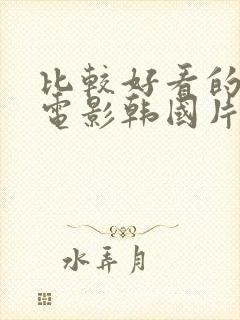 比較好看的
電影韩國片
水弄月